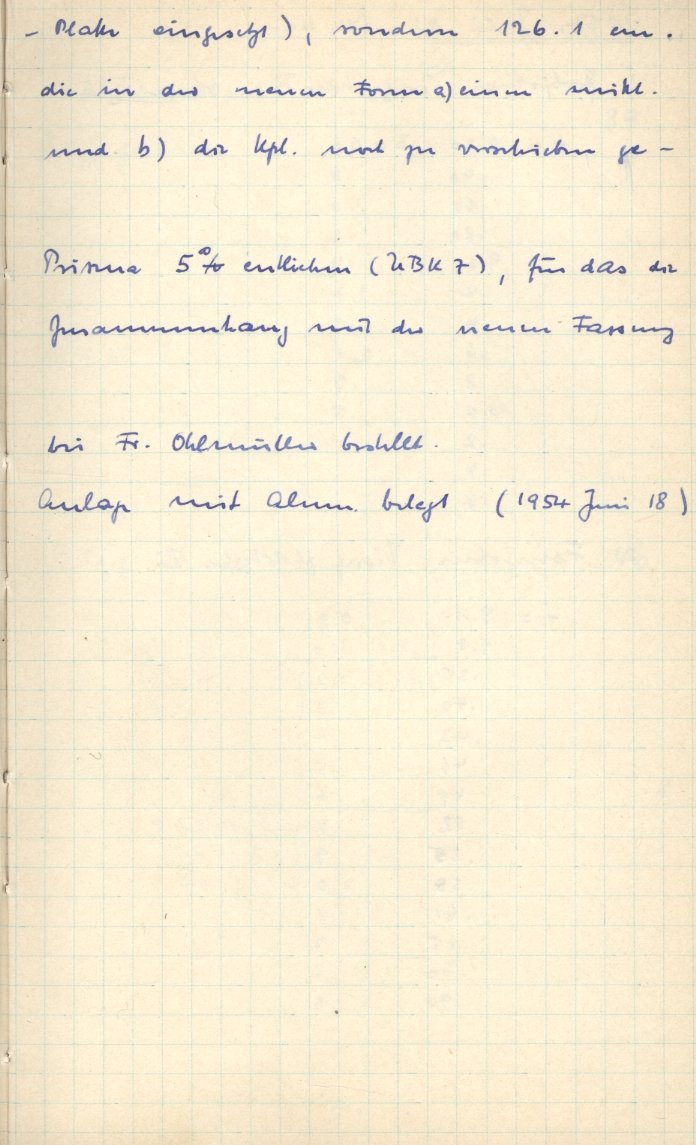 - Platte eingesetzt), sondern 126.1 cm.
die in der neuen Form a) einen
und b) die Kpl. noch zu verschieben ge-
Prisma 5° entliehen (UBK 7), für das die
Zusammenhang mit der neuen Fassung
bei Fr. Ohlmüller bestellt.
Anlage mit Alum. belegt (1954 Juni 18)